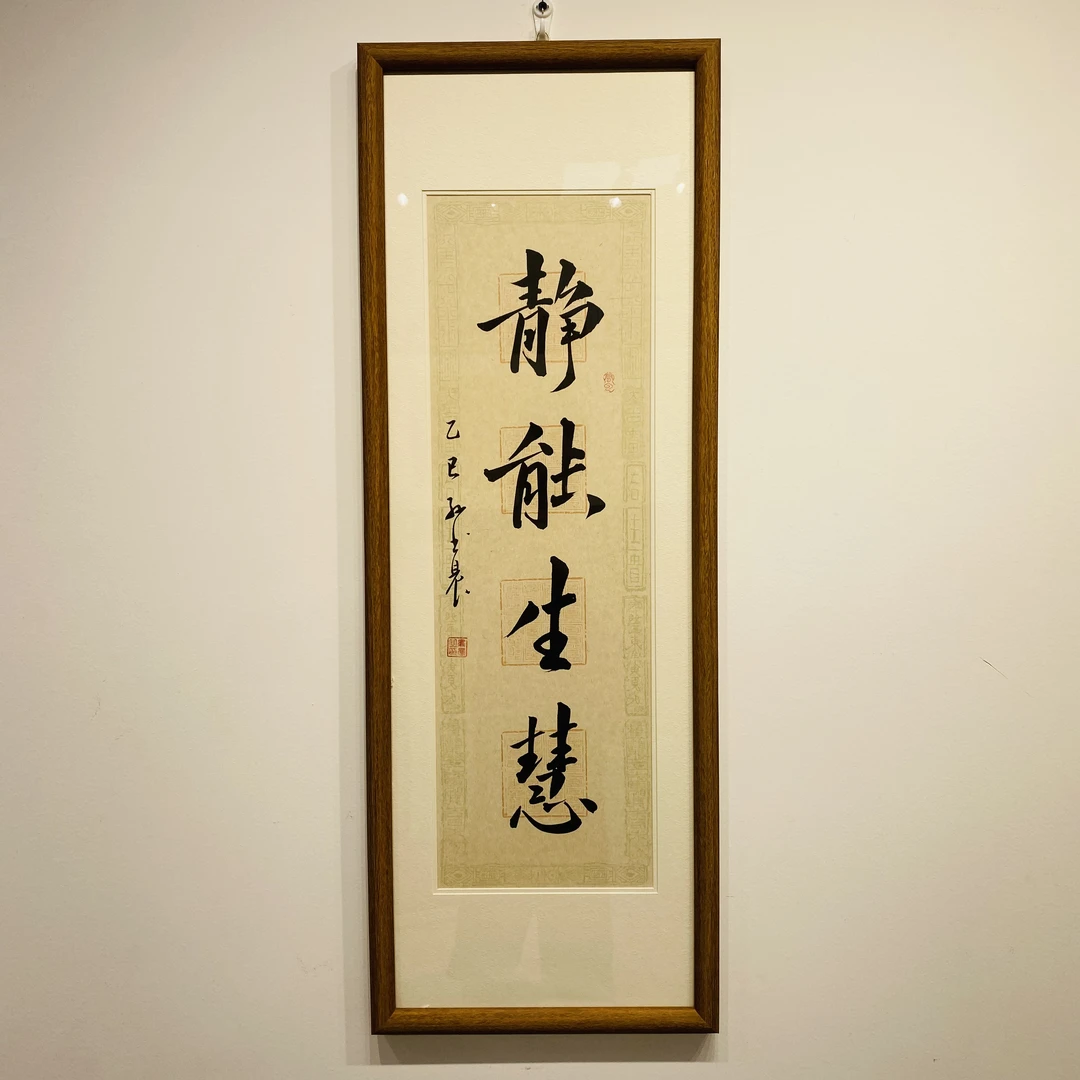 静能生慧
乙巳 书